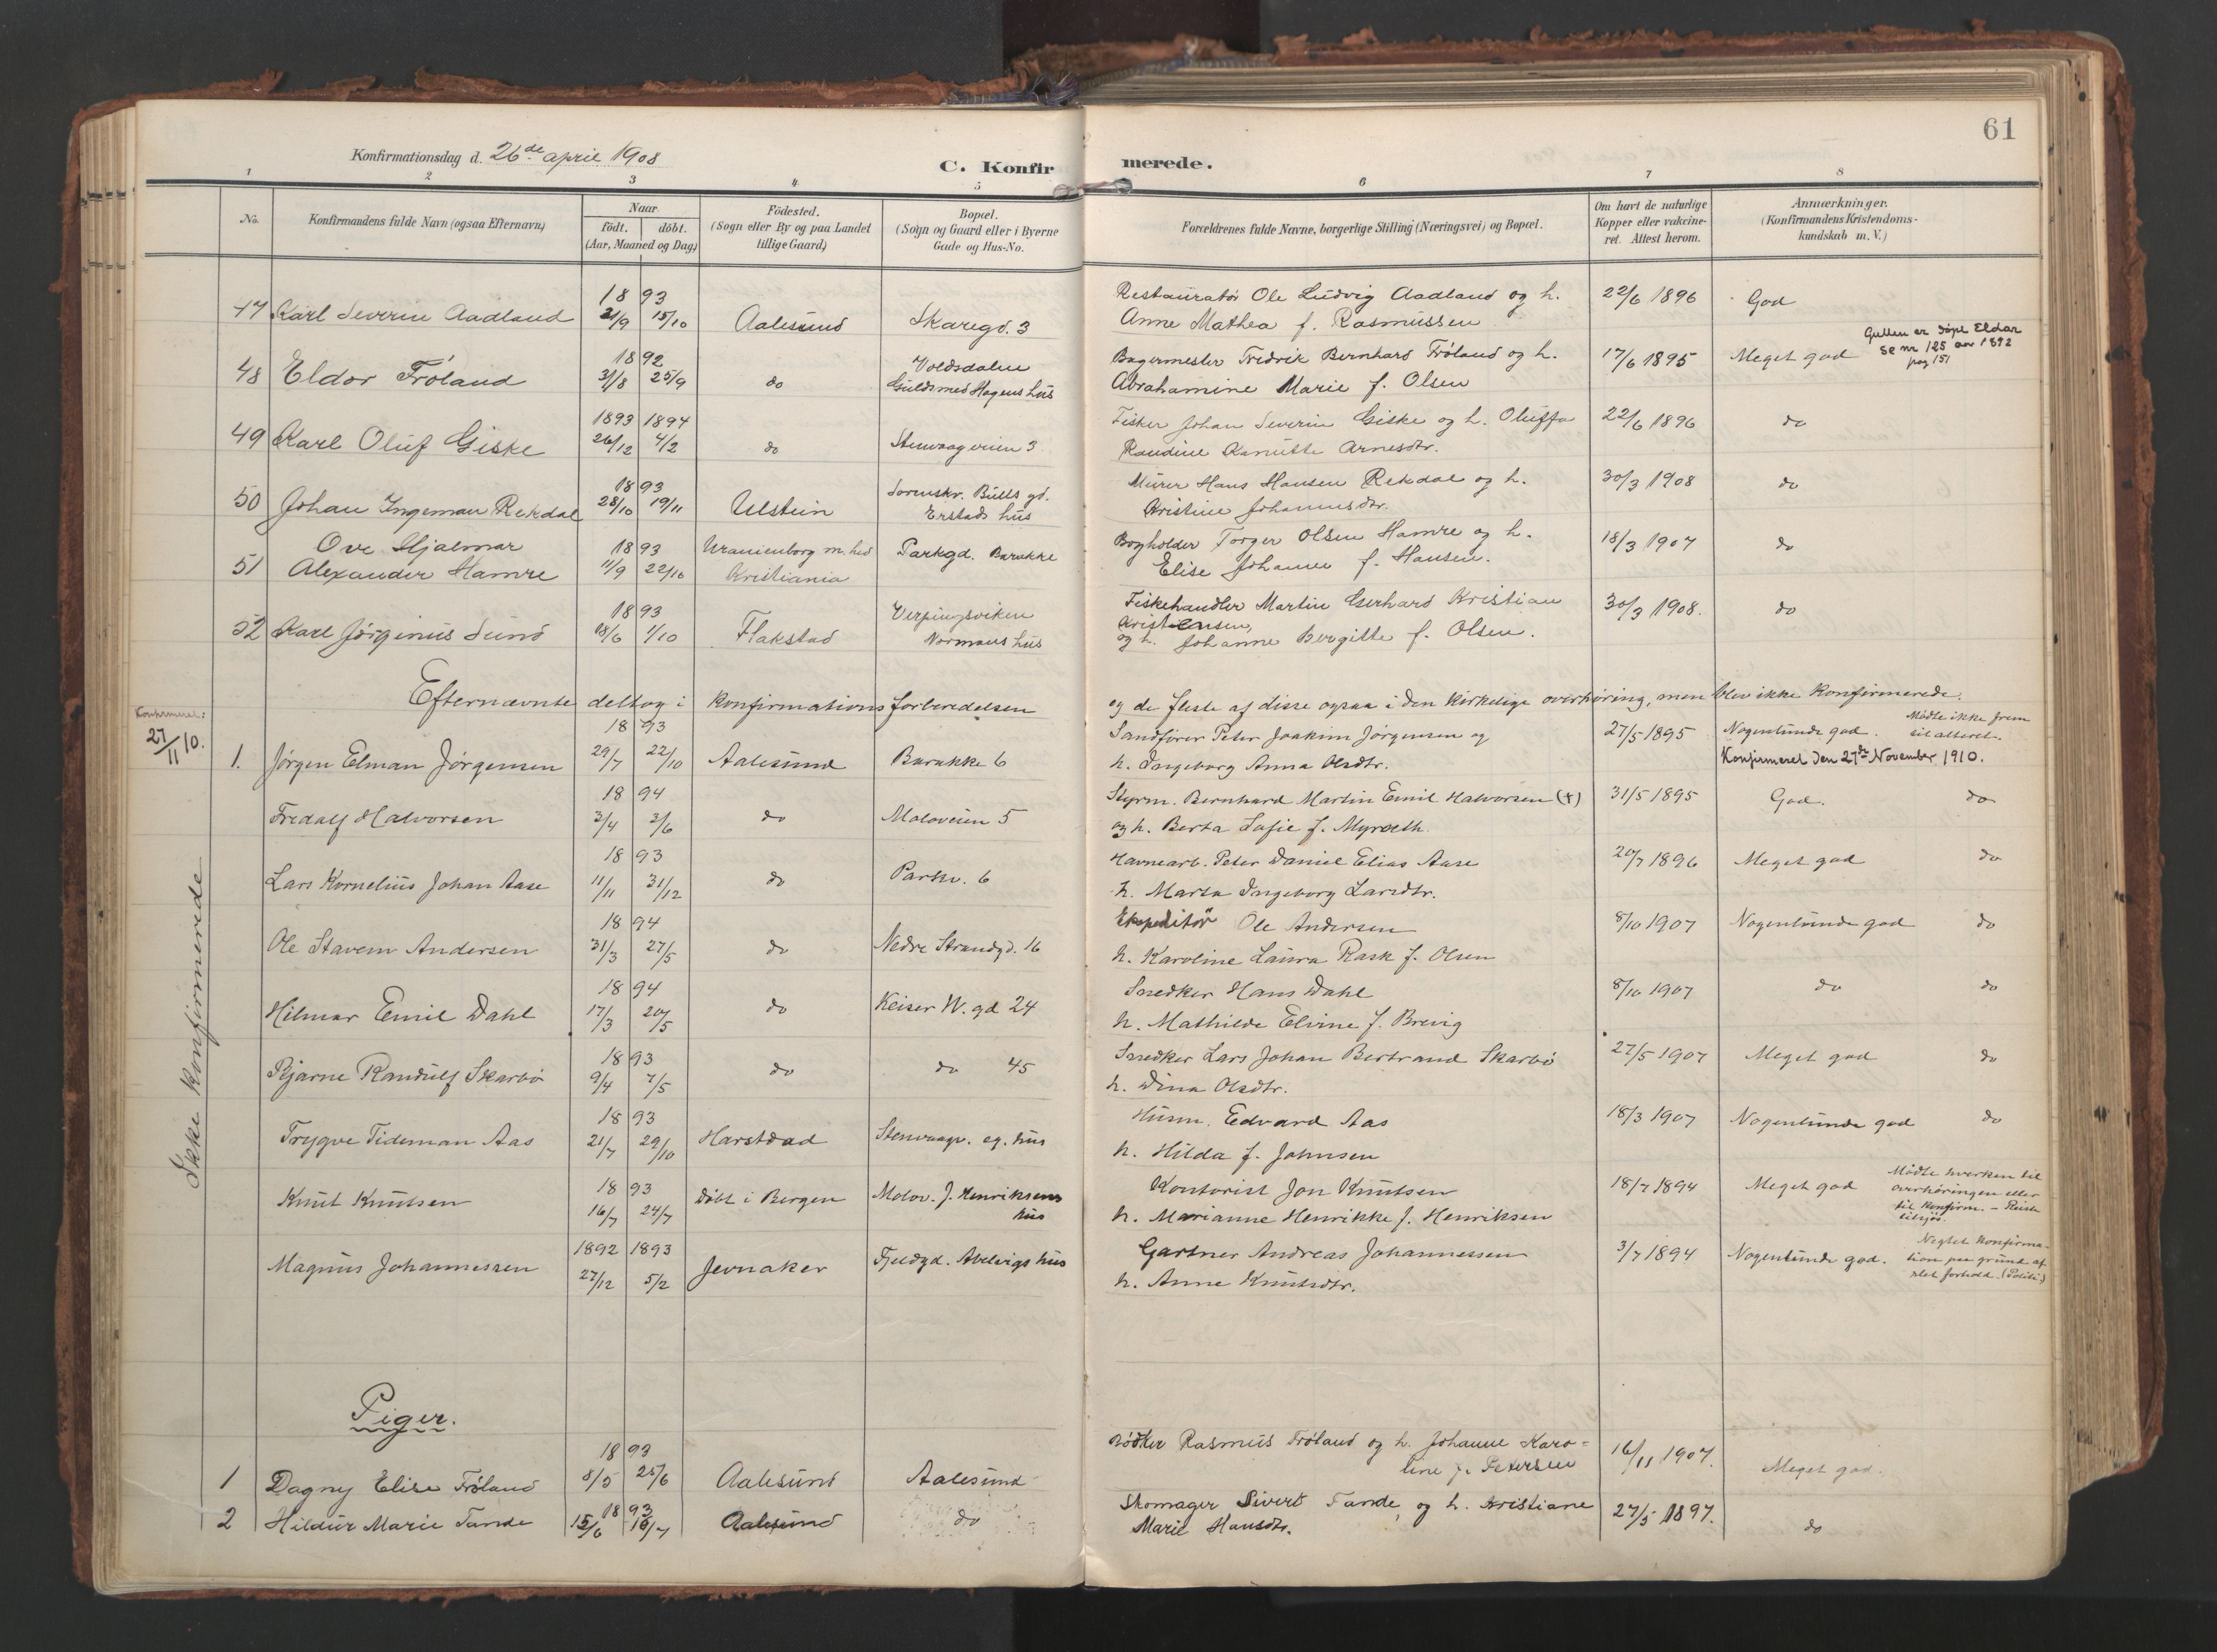 61
Konfirmationsdag d. 26de april 1908
C. Konfirmerede.
1 2 3 4 5 6 7 8
No.
Konfirmandens fulde Navn (ogsaa Efternavn)
Naar
født. døbt.
(Aar, Maaned og Dag)
Fødested.
(Sogn eller By og paa Landet
tillige Gaard)
Bopæl.
(Sogn og Gaard eller i Byerne
Gade og Hus-No.
Forældrenes fulde Navne, borgerlige Stilling (Næringsvei) og Bopæl.
Om havt de naturlige
Kopper eller vakcine-
ret. Attest herom.
Anmærkninger.
(Konfirmandens Kristendoms-
kundskab m. V.)
18 93 Restauratør Ole Ludvig Aadland og h. 22/6 1896 God
47 Karl Severin Aadland 21/9 15/10 Aalesund Skaregd. 3 Anne Mathea f. Rasmussen
Gutten er døpt Eldar
se nr 125 aar 1892
pag 151
18 92 Voldsdalen Bagermester Fredrik Bernhard Frøland og h. 17/6 1895 Meget god
48 Eldor Frøland 31/8 25/9 do Guldsmed Hagens hus Abrahamine Marie f. Olsen
1893 1894 Fisker Johan Severin Giske og h. Oluffa 22/6 1896 do
49 Karl Oluf Giske 26/12 4/2 do Stenvaagveien 3 Raudine Knutte Arnesdtr.
18 93 Sorenskr. Bulls gd. Murer Hans Hansen Rekdal og h. 30/3 1908 do
50 Johan Ingeman Rekdal 28/10 19/11 Ulstein Erstads hus Kristine Johannesdtr.
Ove Hjalmar 18 93 Uranienborg m.hed Parkgd. Barakke Bogholder Torger Olsen Hamre og h. 18/3 1907 do
51 Alexander Hamre 11/9 22/10 Kristiania Elise Johanne f. Hansen.
18 93 Verpingsviken Fiskehandler Martin Gerhard Kristian 30/3 1908. do
Kristensen,
52 Karl Jørginus Sund 18/6 1/10 Flakstad Normans hus og h. Johanne Bergitte f. Olsen.
Efternævnte deltog i konfirmationsforberedelsen og de fleste af disse ogsaa i den kirkelige overhøring, men blev ikke konfirmerede.
Konfirmeret:
27/11 10.
18 93 Sandfører Peter Joakim Jørgensen og 27/5 1895 Nogenlunde god. Mødte ikke frem
til alteret.
1. Jørgen Elman Jørgensen 29/7 22/10 Aalesund Barakke 6 h. Ingeborg Anna Olsdtr. Konfirmeret den 27de November 1910.
18 94 Styrm. Bernhard Martin Emil Halvorsen (†) 31/5 1895 God. do
Fredolf Halvorsen 3/4 3/6 do Moloveien 5 og h. Berta Sofie f. Myrseth
18 93 Havnearb. Peter Daniel Elias Aase 20/7 1896 Meget god do
Lars Kornelius Johan Aase 11/11 31/12 do Parkv. 6 h. Marta Ingeborg Larsdtr.
18 94 Ekspeditør Ole Andersen 8/10 1907 Nogenlunde god do
Ole Stavem Andersen 31/3 27/5 do Nedre Strandgd. 16 h. Karoline Laura Rask f. Olsen
18 94 Snedker Hans Dahl 8/10 1907 do do
Hilmar Emil Dahl 17/3 20/5 do Keiser W. gd 24 h. Mathilde Elvine f. Brevig
18 93 Snedker Lars Johan Bertrand Skarbø 27/5 1907 Meget god do
Bjarne Randulf Skarbø 9/4 7/5 do do 45 h. Dina Olsdtr.
18 93 Husm. Edvard Aas 18/3 1907 Nogenlunde god do
Trygve Tideman Aas 21/7 29/10 Harstdad Stenvaagv. eg. hus h. Hilda f. Johnsen
18 93 Kontorist Jon Knutsen 18/7 1894 Meget god Mødte hverken til
overhøringen eller
til konfirm. - Reiste
tilsjøs.
Knut Knutsen 16/7 24/7 døbt i Bergen Molov. J. Henriksens hus h. Marianne Henrikke f. Henriksen
1892 1893 Gartner Andreas Johannessen 3/7 1894 Nogenlunde god. Negtet konfirma-
tion paa grund af
slet forhold. (Politi)
Magnus Johannessen 27/12 5/2 Jevnaker Fjeldgd. Abelvigs hus h. Anne Knutsdtr.
Ikke konfirmerede
Piger.
18 93 Bødker Rasmus Frøland og h. Johanne Karo= 16/11 1907.
1 Dagny Elise Frøland 8/5 25/6 Aalesund Aalesund line f. Petersen Meget god.
18 93 Skomager Sivert Tande, og h. Kristiane 27/5 1897.
2 Hildur Marie Tande 15/6 16/7 Aalesund do Marie Hansdtr. do